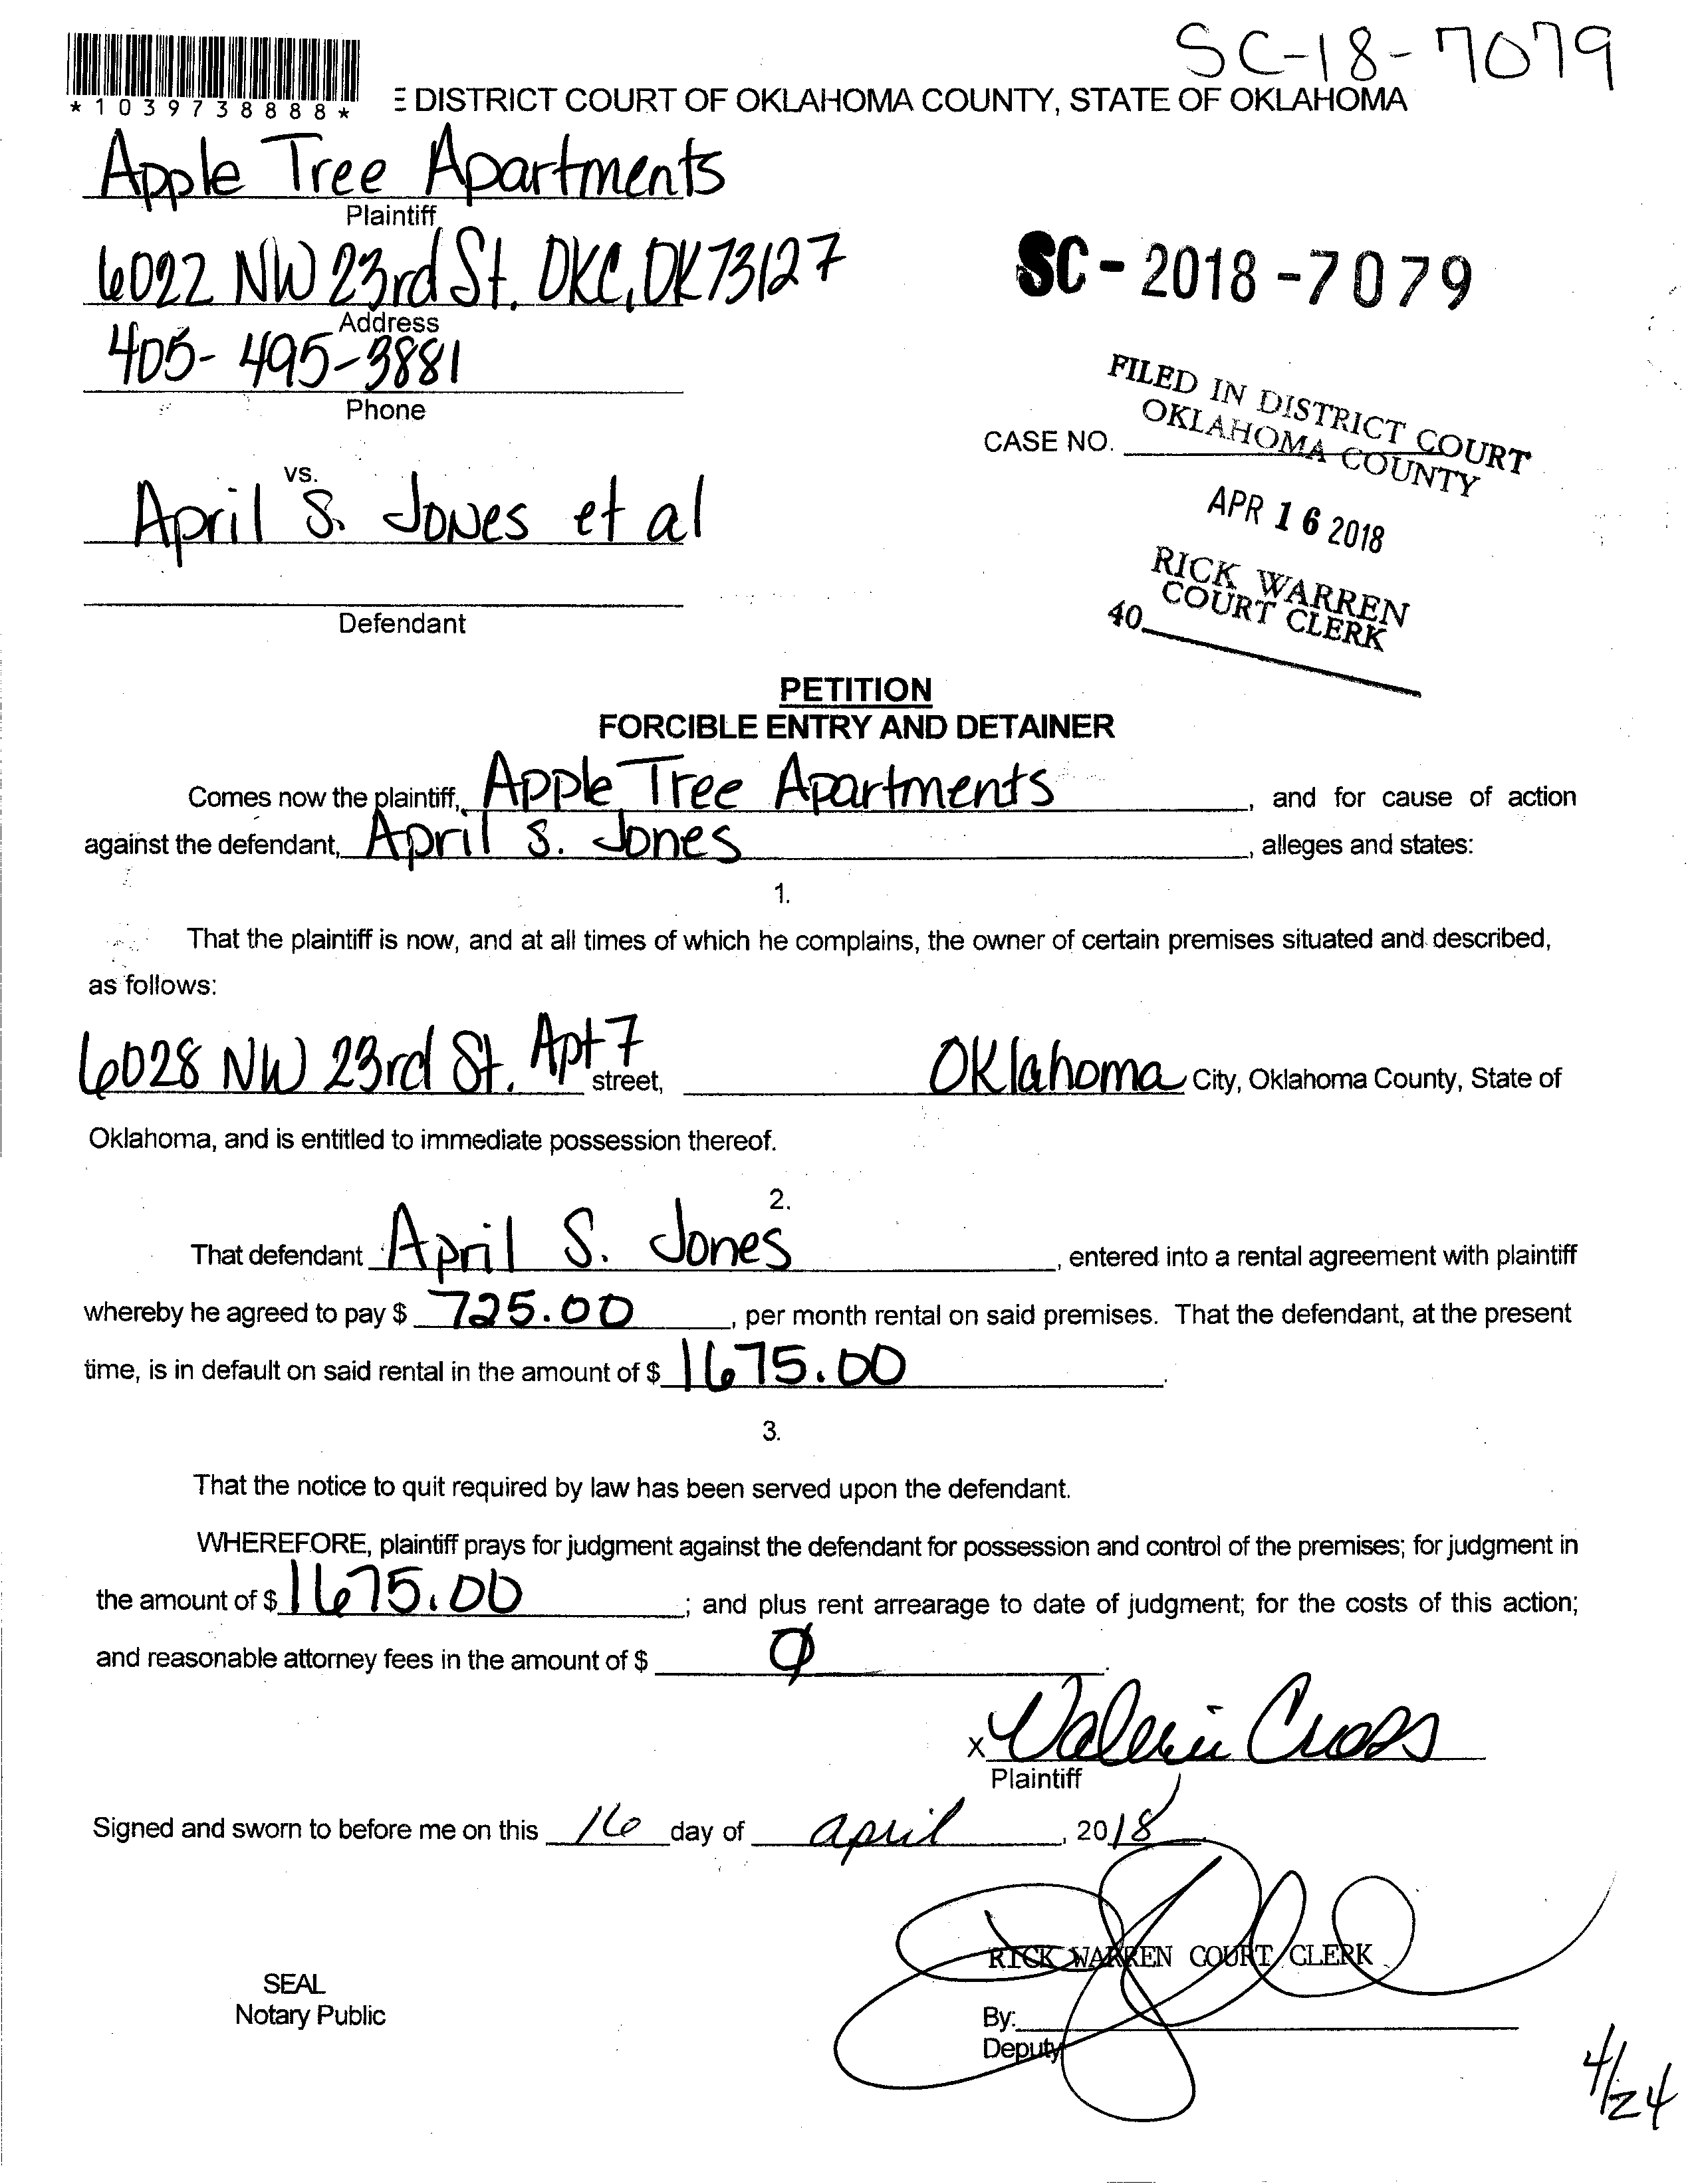 SC-18-7079
*1039738888*
E DISTRICT COURT OF OKLAHOMA COUNTY, STATE OF OKLAHOMA
Apple Tree Apartments
Plaintiff
6022 NW 23rd St. OKC, OK 73127
Address
SC-2018-7079
405-495-3881
Phone
FILED IN DISTRICT COURT
OKLAHOMA COUNTY
CASE NO.
APR 16 2018
RICK WARREN
COURT CLERK
40
vs.
April S. Jones et al
Defendant
PETITION
FORCIBLE ENTRY AND DETAINER
Comes now the plaintiff, Apple Tree Apartments, and for cause of action
against the defendant, April S. Jones, alleges and states:
1.
That the plaintiff is now, and at all times of which he complains, the owner of certain premises situated and described,
as follows:
6028 NW 23rd St. Apt 7 street, Oklahoma City, Oklahoma County, State of
Oklahoma, and is entitled to immediate possession thereof.
2.
That defendant April S. Jones, entered into a rental agreement with plaintiff
whereby he agreed to pay $ 725.00, per month rental on said premises. That the defendant, at the present
time, is in default on said rental in the amount of $ 1675.00.
3.
That the notice to quit required by law has been served upon the defendant.
WHEREFORE, plaintiff prays for judgment against the defendant for possession and control of the premises; for judgment in
the amount of $ 1675.00; and plus rent arrearage to date of judgment; for the costs of this action;
and reasonable attorney fees in the amount of $ Ø.
x Valerie Cross
Plaintiff
Signed and sworn to before me on this 16 day of april, 2018.
RICK WARREN COURT CLERK
SEAL
Notary Public
By:
Deputy
4/24